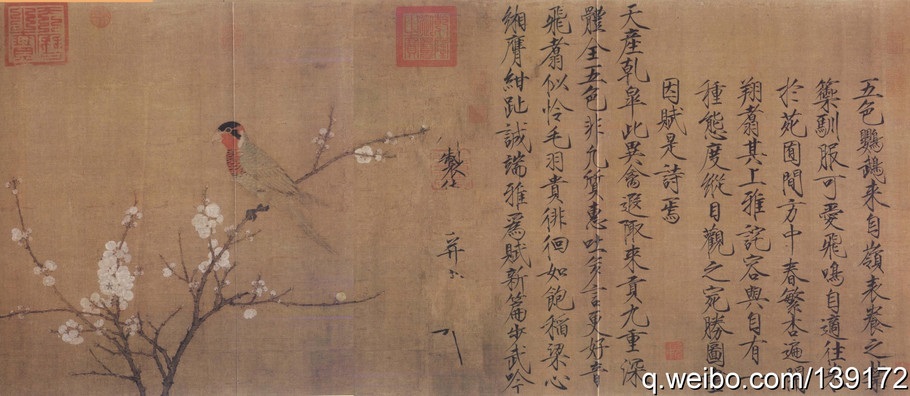 五色鸚鵡來自嶺表養之禁
籞馴服可愛飛鳴自適往來
於苑囿間方中春繁杏遍開
翔翥其上雅詫容與自有一
種態度縱目觀之宛勝圖畫
因賦是詩焉
天產乾皐此異禽遐陬來貢九重深
體全五色非凡質惠吐多言更好音
飛翥似憐毛羽貴徘徊如飽稻粱心
緗膺紺趾誠端雅為賦新篇步武吟
製
并書
q.weibo.com/139172